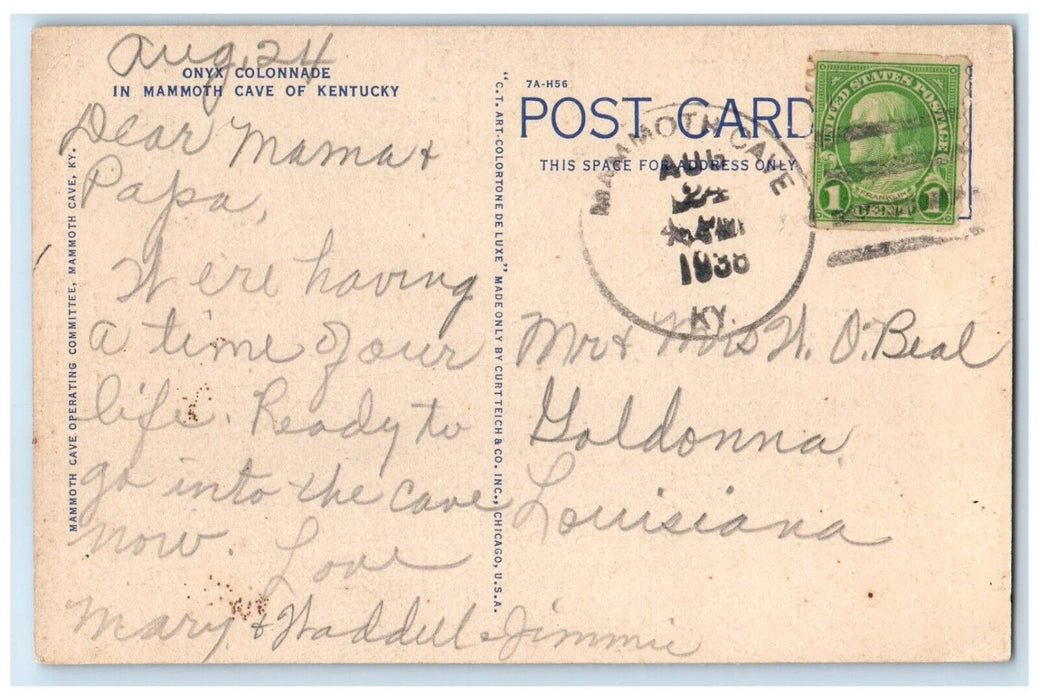 Aug. 24
ONYX COLONNADE
IN MAMMOTH CAVE OF KENTUCKY
Dear Mama &
Papa,
Were having
a time of our
life. Ready to
go into the cave
now. Love
Mary & Waddell & Jimmie
MAMMOTH CAVE OPERATING COMMITTEE, MAMMOTH CAVE, KY.
"C.T. ART-COLORTONE DE LUXE" MADE ONLY BY CURT TEICH & CO. INC., CHICAGO, U.S.A.
7A-H56
POST CARD
THIS SPACE FOR ADDRESS ONLY
MAMMOTH CAVE
AUG
24
1938
KY.
UNITED STATES POSTAGE
FRANKLIN
1 CENT 1
Mr & Mrs W. O. Beal
Goldonna,
Louisiana